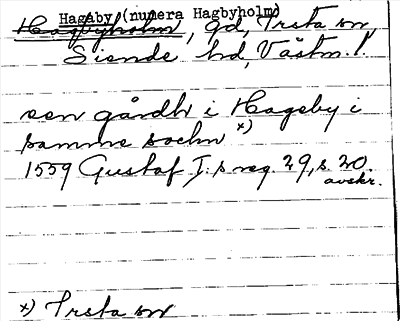 Hagaby (numera Hagbyholm)
Hagbyholm, gd, Irsta sn
Siende hd, Västm. l.
een gårdh i Hageby i
samme sochn x)
1559 Gustaf I:s reg. 29, s. 20.
avskr.
x) Irsta sn